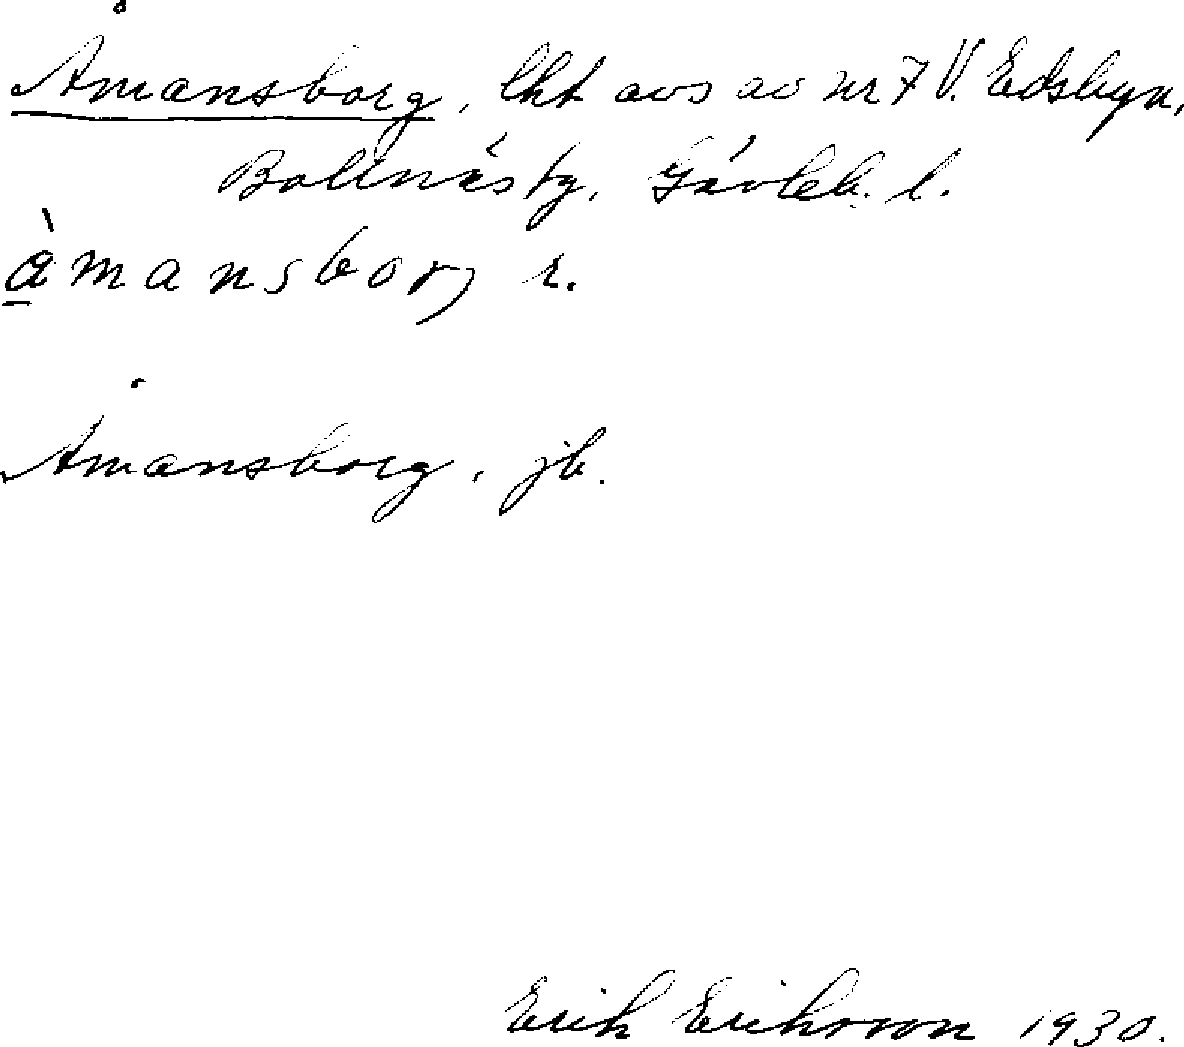 Åmansborg, lht avs av nr 7 V. Edsbyn,
Bollnäs tg, Gävleb. l.
åmansborg r.
Åmansborg, jb.
Erik Eriksson 1930.